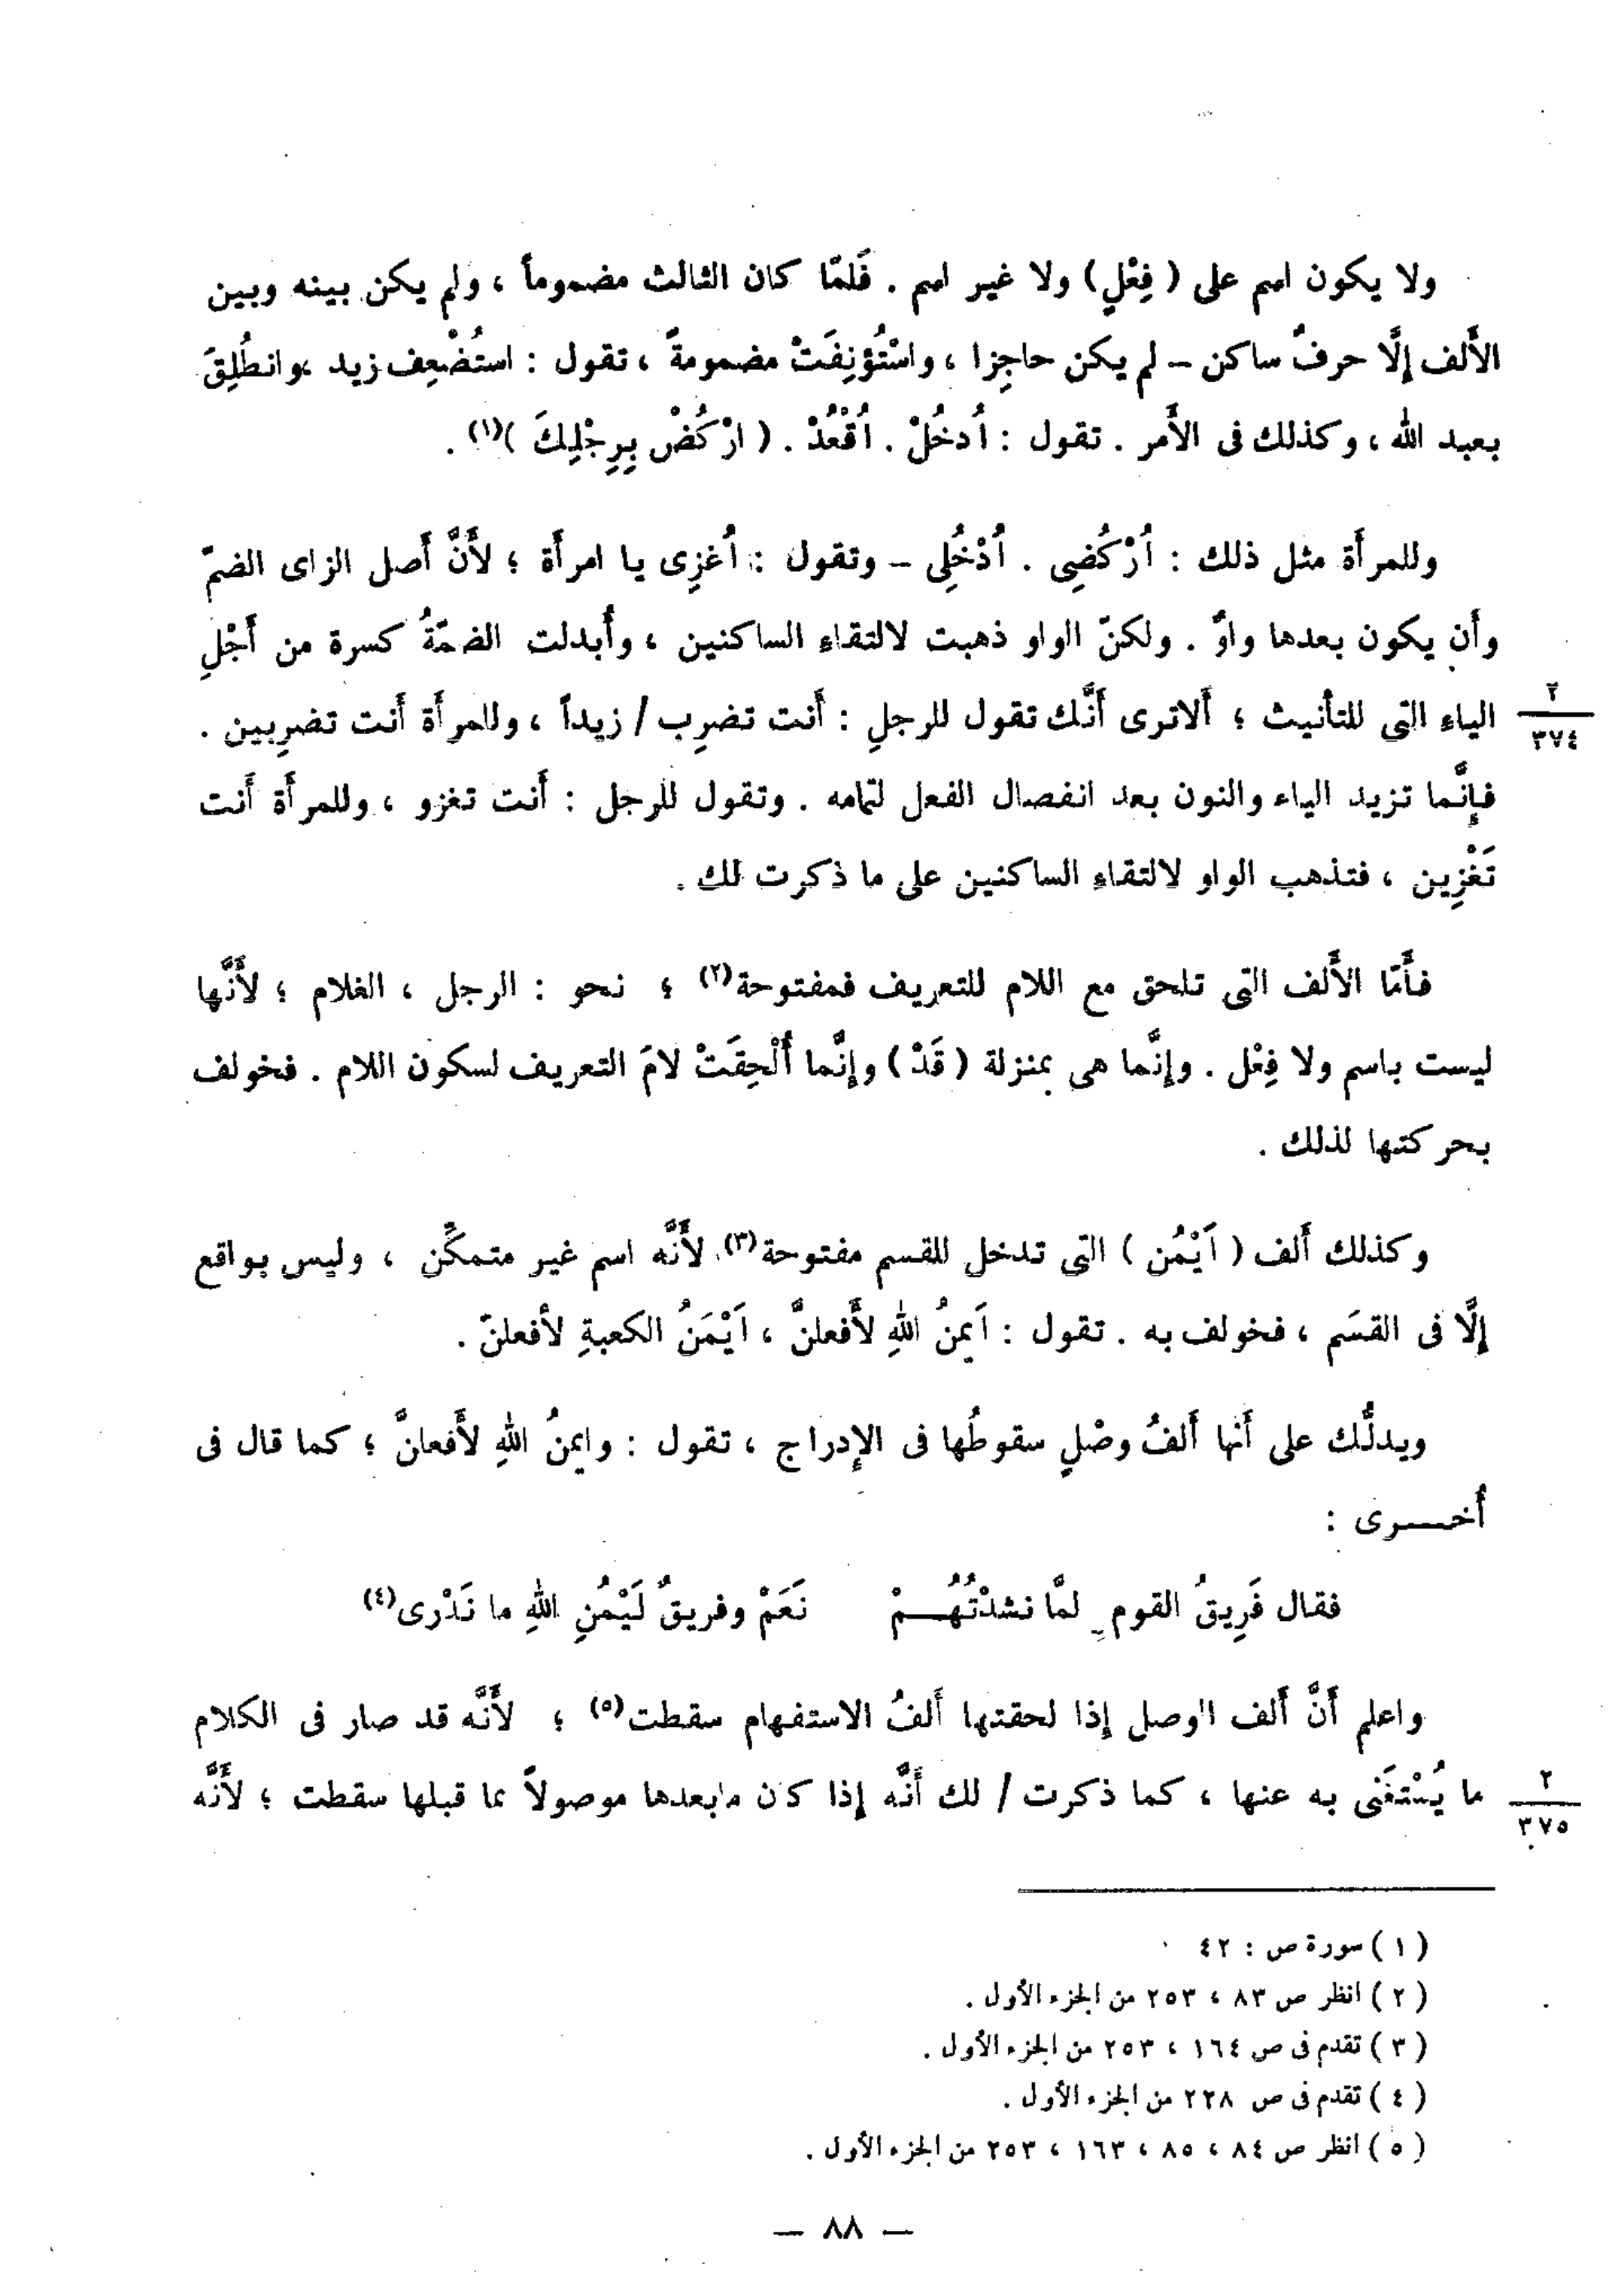 ولا يكون اسم على ( فِعُلٍ ) ولا غير اسم . فَلمّا كان الثالث مضموماً ، ولم يكن بينه وبين
الأَلف إلَّا حرفٌ ساكن – لم يكن حاجِزا ، واسْتُؤنِفَتْ مضمومةً ، تقول : استُضْعِف زيد ،وانطُلِقَ
بعبد الله ، وكذلك فى الأَمر . تقول : اُدخُلْ . اُقْعُدْ . ( ارْكُضْ بِرِجْلِكَ )(١) .
وللمرأَة مثل ذلك : اُرْكُضِى . اُدْخُلِى – وتقول : اُغزِى يا امرأَة ؛ لأَنَّ أَصل الزاى الضمّ
وأَن يكون بعدها واوٌ . ولكنّ الواو ذهبت لالتقاءِ الساكنين ، وأُبدلت الضمّةُ كسرة من أَجْلِ
الياءِ التى للتأنيث ؛ أَلاترى أَنَّك تقول للرجلِ : أَنت تضرِب / زيداً ، وللمرأَة أَنت تضرِبين .
٢
٣٧٤
فإنَّما تزيد الياء والنون بعد انفصال الفعل لتمامه . وتقول للرجل : أَنت تغزو ، وللمرأَة أَنت
تَغْزِين ، فتذهب الواو لالتقاءِ الساكنين على ما ذكرت لك .
فأَمّا الأَلف التى تلحق مع اللام للتعريف فمفتوحة(٢) ؛ نحو : الرجل ، الغلام ؛ لأَنَّها
ليست باسم ولا فِعْل . وإنَّما هى بمنزلة ( قَدْ ) وإنَّما أُلْحِقَتْ لامَ التعريف لسكون اللام . فخولف
بحركتها لذلك .
وكذلك أَلف ( اَيْمُن ) التى تدخل للقسم مفتوحة(٣) لأَنَّه اسم غير متمكِّن ، وليس بواقع
إلَّا فى القسَم ، فخولف به . تقول : اَيمنُ اللهِ لأَفعلنَّ ، اَيْمَنُ الكعبةِ لأفعلنّ .
ويدلُّك على أَنها أَلفُ وصْلٍ سقوطُها فى الإدراج ، تقول : وايمنُ اللهِ لأَفعلنَّ ؛ كما قال فى
أُخـــرى :
فقال فَرِيقُ القومِ لمَّا نشدْتُهُـــمْ نَعَمْ وفريقٌ لَيْمُنِ اللهِ ما نَدْرى(٤)
واعلم أَنَّ أَلف الوصل إذا لحقتها أَلفُ الاستفهام سقطت(٥) ؛ لأَنَّه قد صار فى الكلام
ما يُسْتغَنى به عنها ، كما ذكرت / لك أَنَّه إذا كان مابعدها موصولاً بما قبلها سقطت ؛ لأَنَّه
٢
٣٧٥
( ١ ) سورة ص : ٤٢
( ٢ ) انظر ص ٨٣ ، ٢٥٣ من الجزء الأول .
( ٣ ) تقدم فى ص ١٦٤ ، ٢٥٣ من الجزء الأول .
( ٤ ) تقدم فى ص ٢٢٨ من الجزء الأول .
( ٥ ) انظر ص ٨٤ ، ٨٥ ، ١٦٣ ، ٢٥٣ من الجزء الأول .
— ٨٨ —